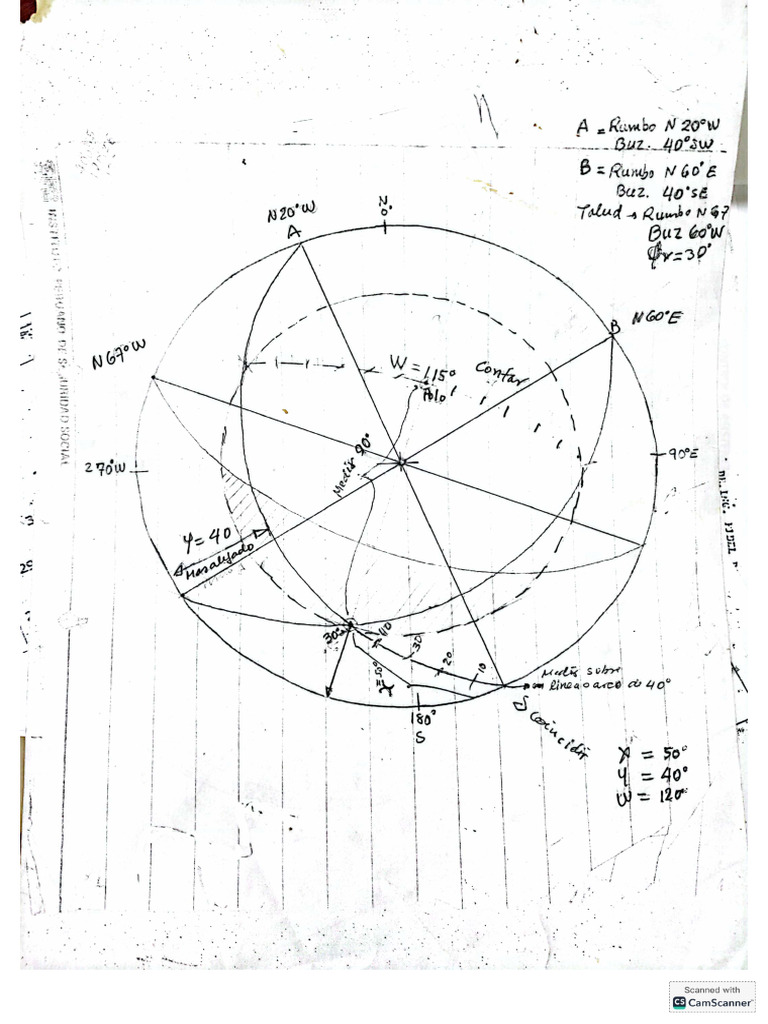 A = Rumbo N 20°W
Buz. 40°SW
B = Rumbo N 60°E
Buz. 40°SE
Talud → Rumbo N 67
Buz 60°W
φr = 30°
N
0°
N20°W
A
N60°E
B
N67°W
W = 115°
Contar
Polo
Medir 90°
270°W
90°E
Y = 40
30°
40
30
20
10
X = 50°
Medir sobre
linea o arco de 40°
180°
S
Coincidir
X = 50°
Y = 40°
W = 120°
SOCIAL
Scanned with
CS CamScanner